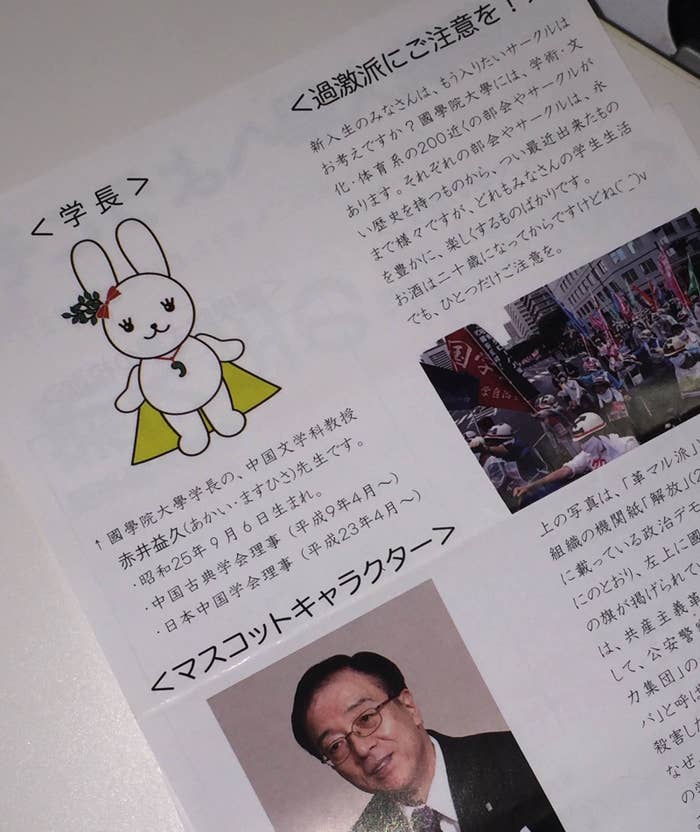 <学 長>
↑國學院大學学長の、中国文学科教授
赤井益久(あかい・ますひさ)先生です。
・昭和25年9月6日生まれ。
・中国古典学会理事(平成9年4月～)
・日本中国学会理事(平成23年4月～)
<マスコットキャラクター>
<過激派にご注意を!
新入生のみなさんは、もう入りたいサークルは
お考えですか?國學院大學には、学術・文
化・体育系の200近くの部会やサークルが
あります。それぞれの部会やサークルは、永
い歴史を持つものから、つい最近出来たもの
まで様々ですが、どれもみなさんの学生生活
を豊かに、楽しくするものばかりです。
お酒は二十歳になってからですけどね(˙꒳˙)v
でも、ひとつだけご注意を。
上の写真は、「革マル派」
組織の機関紙「解放」(2
に載っている政治デモ
にのとおり、左上に國
の旗が掲げられてい
は、共産主義革
して、公安警察
カ集団」の
バ」と呼ば
殺害した
なぜ、
の学